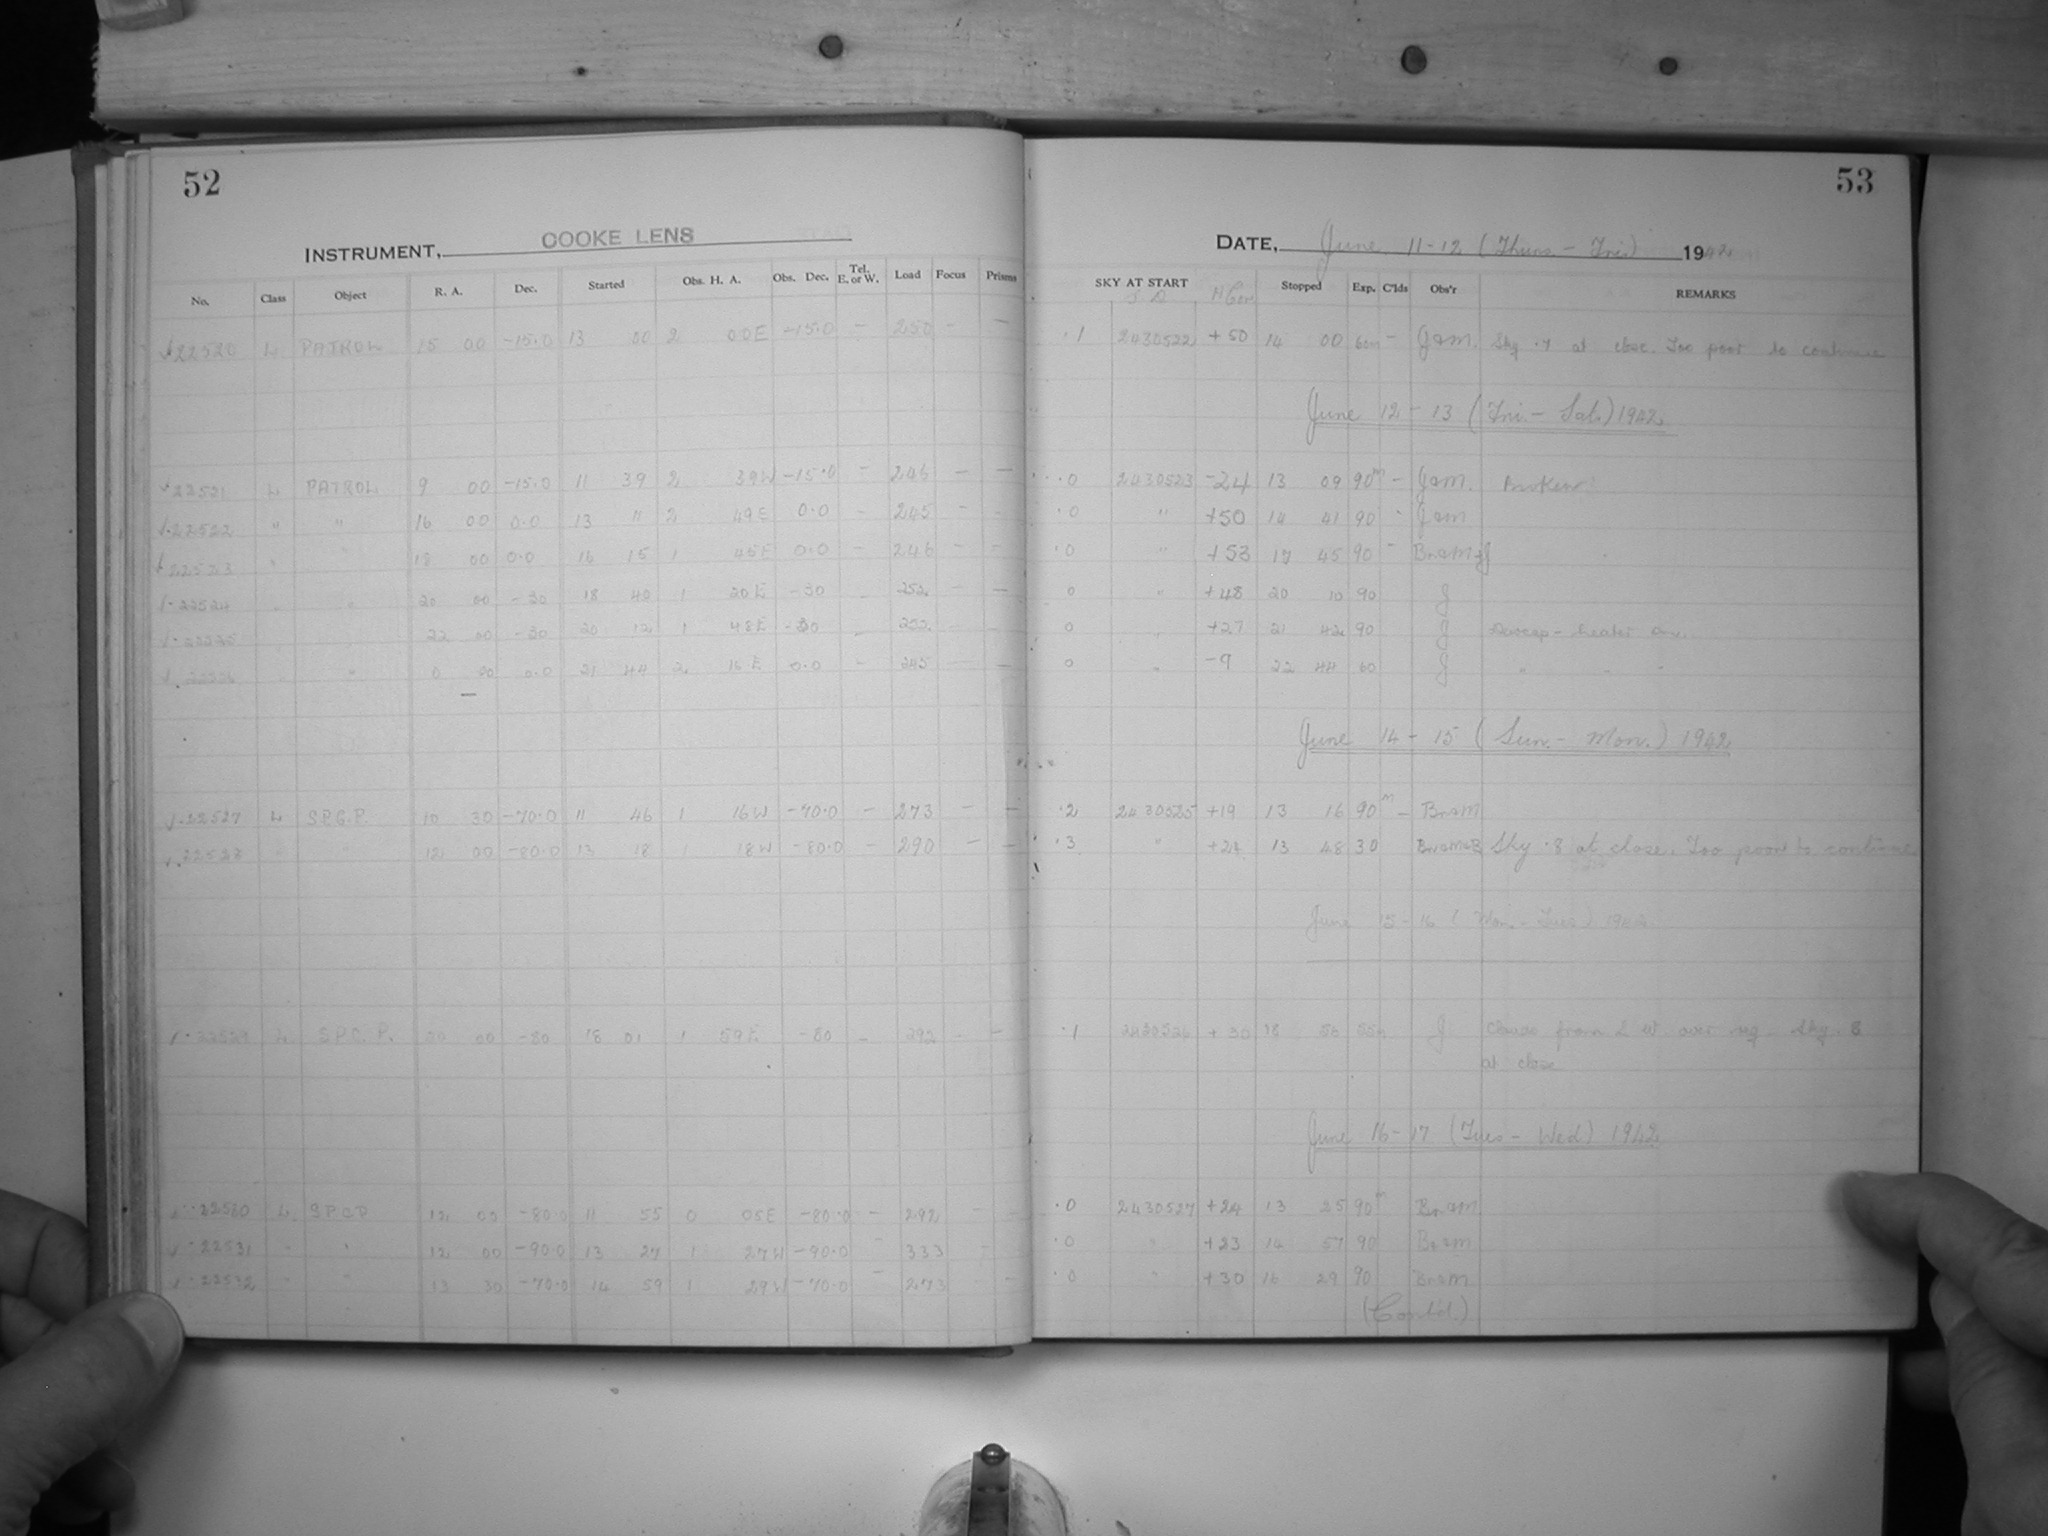 52
INSTRUMENT, COOKE LENS
No. Class Object R. A. Dec. Started Obs. H. A. Obs. Dec. Tel. E. or W. Load Focus Prisms
22520 L PATROL 15 00 -15.0 13 00 2 00E -15.0 - 250 - -
22521 L PATROL 9 00 -15.0 11 39 2 39W -15.0 - 246 - -
22522 " " 16 00 0.0 13 11 2 49E 0.0 - 245 - -
22523 " " 18 00 0.0 16 15 1 45E 0.0 - 246 - -
22524 " " 20 00 -30 18 40 1 20E -30 - 252 - -
22525 22 00 -30 20 12 1 48E -30 - 252 - -
22526 " " 0 00 0.0 21 44 2 16E 0.0 - 245 - -
22527 L S.P.G.P. 10 30 -70.0 11 46 1 16W -70.0 - 273 - -
22528 " " 12 00 -80.0 13 18 1 18W -80.0 - 290 - -
22529 L S.P.C.P. 20 00 -80 18 01 1 59E -80 - 292 - -
22530 L SPCP 12 00 -80.0 11 55 0 05E -80.0 - 292 - -
22531 " " 12 00 -90.0 13 27 1 27W -90.0 - 333 -
22532 " " 13 30 -70.0 14 59 1 29W -70.0 - 273 - -
53
DATE, June 11-12 (Thurs - Fri) 1942
SKY AT START Stopped Exp. C'lds Obs'r REMARKS
J.D. H Cor
.1 2430522 +50 14 00 60m - Jam. Sky .7 at close. Too poor to continue
June 12 - 13 (Fri. - Sat.) 1942
.0 2430523 -24 13 09 90m - Jam. Broken
.0 " +50 14 41 90 - Jam
.0 " +53 17 45 90 - BramJ
0 " +48 20 10 90 J
0 " +27 21 42 90 J Dewcap - heater on
0 " -9 22 44 60 J " " "
June 14 - 15 (Sun. - Mon.) 1942
.2 2430525 +19 13 16 90m - Bram
.3 " +24 13 48 30 Sky .8 at close. Too poor to continue
June 15 - 16 (Mon. - Tues) 1942
.1 2430526 +30 18 56 55m J Clouds from S W over reg. Sky .8
at close
June 16 - 17 (Tues - Wed) 1942
.0 2430527 +24 13 25 90m Bram
.0 " +23 14 57 90 Bram
.0 " +30 16 29 90 Bram
(Cont'd.)